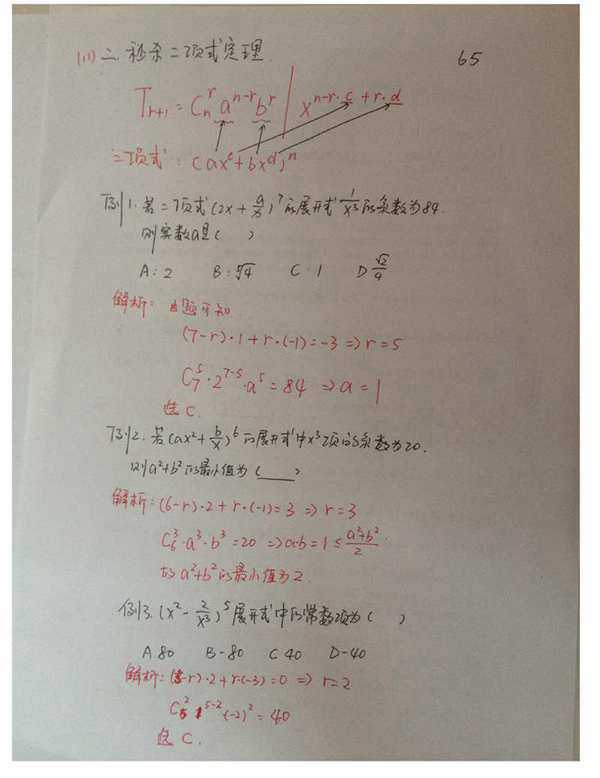 (11) 二. 秒杀二项式定理. 65
T_{r+1} = C_n^r a^{n-r} b^r | x^{n-r·c+r·d}
二项式: (ax^c+bx^d)^n
例1. 若二项式(2x+a/x)^7的展开式1/x^3的系数为84.
则实数a是( )
A: 2 B: ⁵√4 C·1 D √2/4
解析: 由题可知
(7-r)·1+r·(-1)=-3 ⇒ r=5
C_7^5·2^{7-5}·a^5=84 ⇒ a=1
选C.
例2. 若(ax^2+b/x)^6的展开式中x^3项的系数为20.
则a^2+b^2的最小值为(____)
解析: (6-r)·2+r·(-1)=3 ⇒ r=3
C_6^3·a^3·b^3=20 ⇒ a·b=1≤(a^2+b^2)/2
故a^2+b^2的最小值为2.
例3. (x^2-2/x^3)^5展开式中的常数项为( )
A 80 B-80 C 40 D-40
解析: (5-r)·2+r·(-3)=0 ⇒ r=2
C_5^2 1^{5-2} (-2)^2=40
选C.